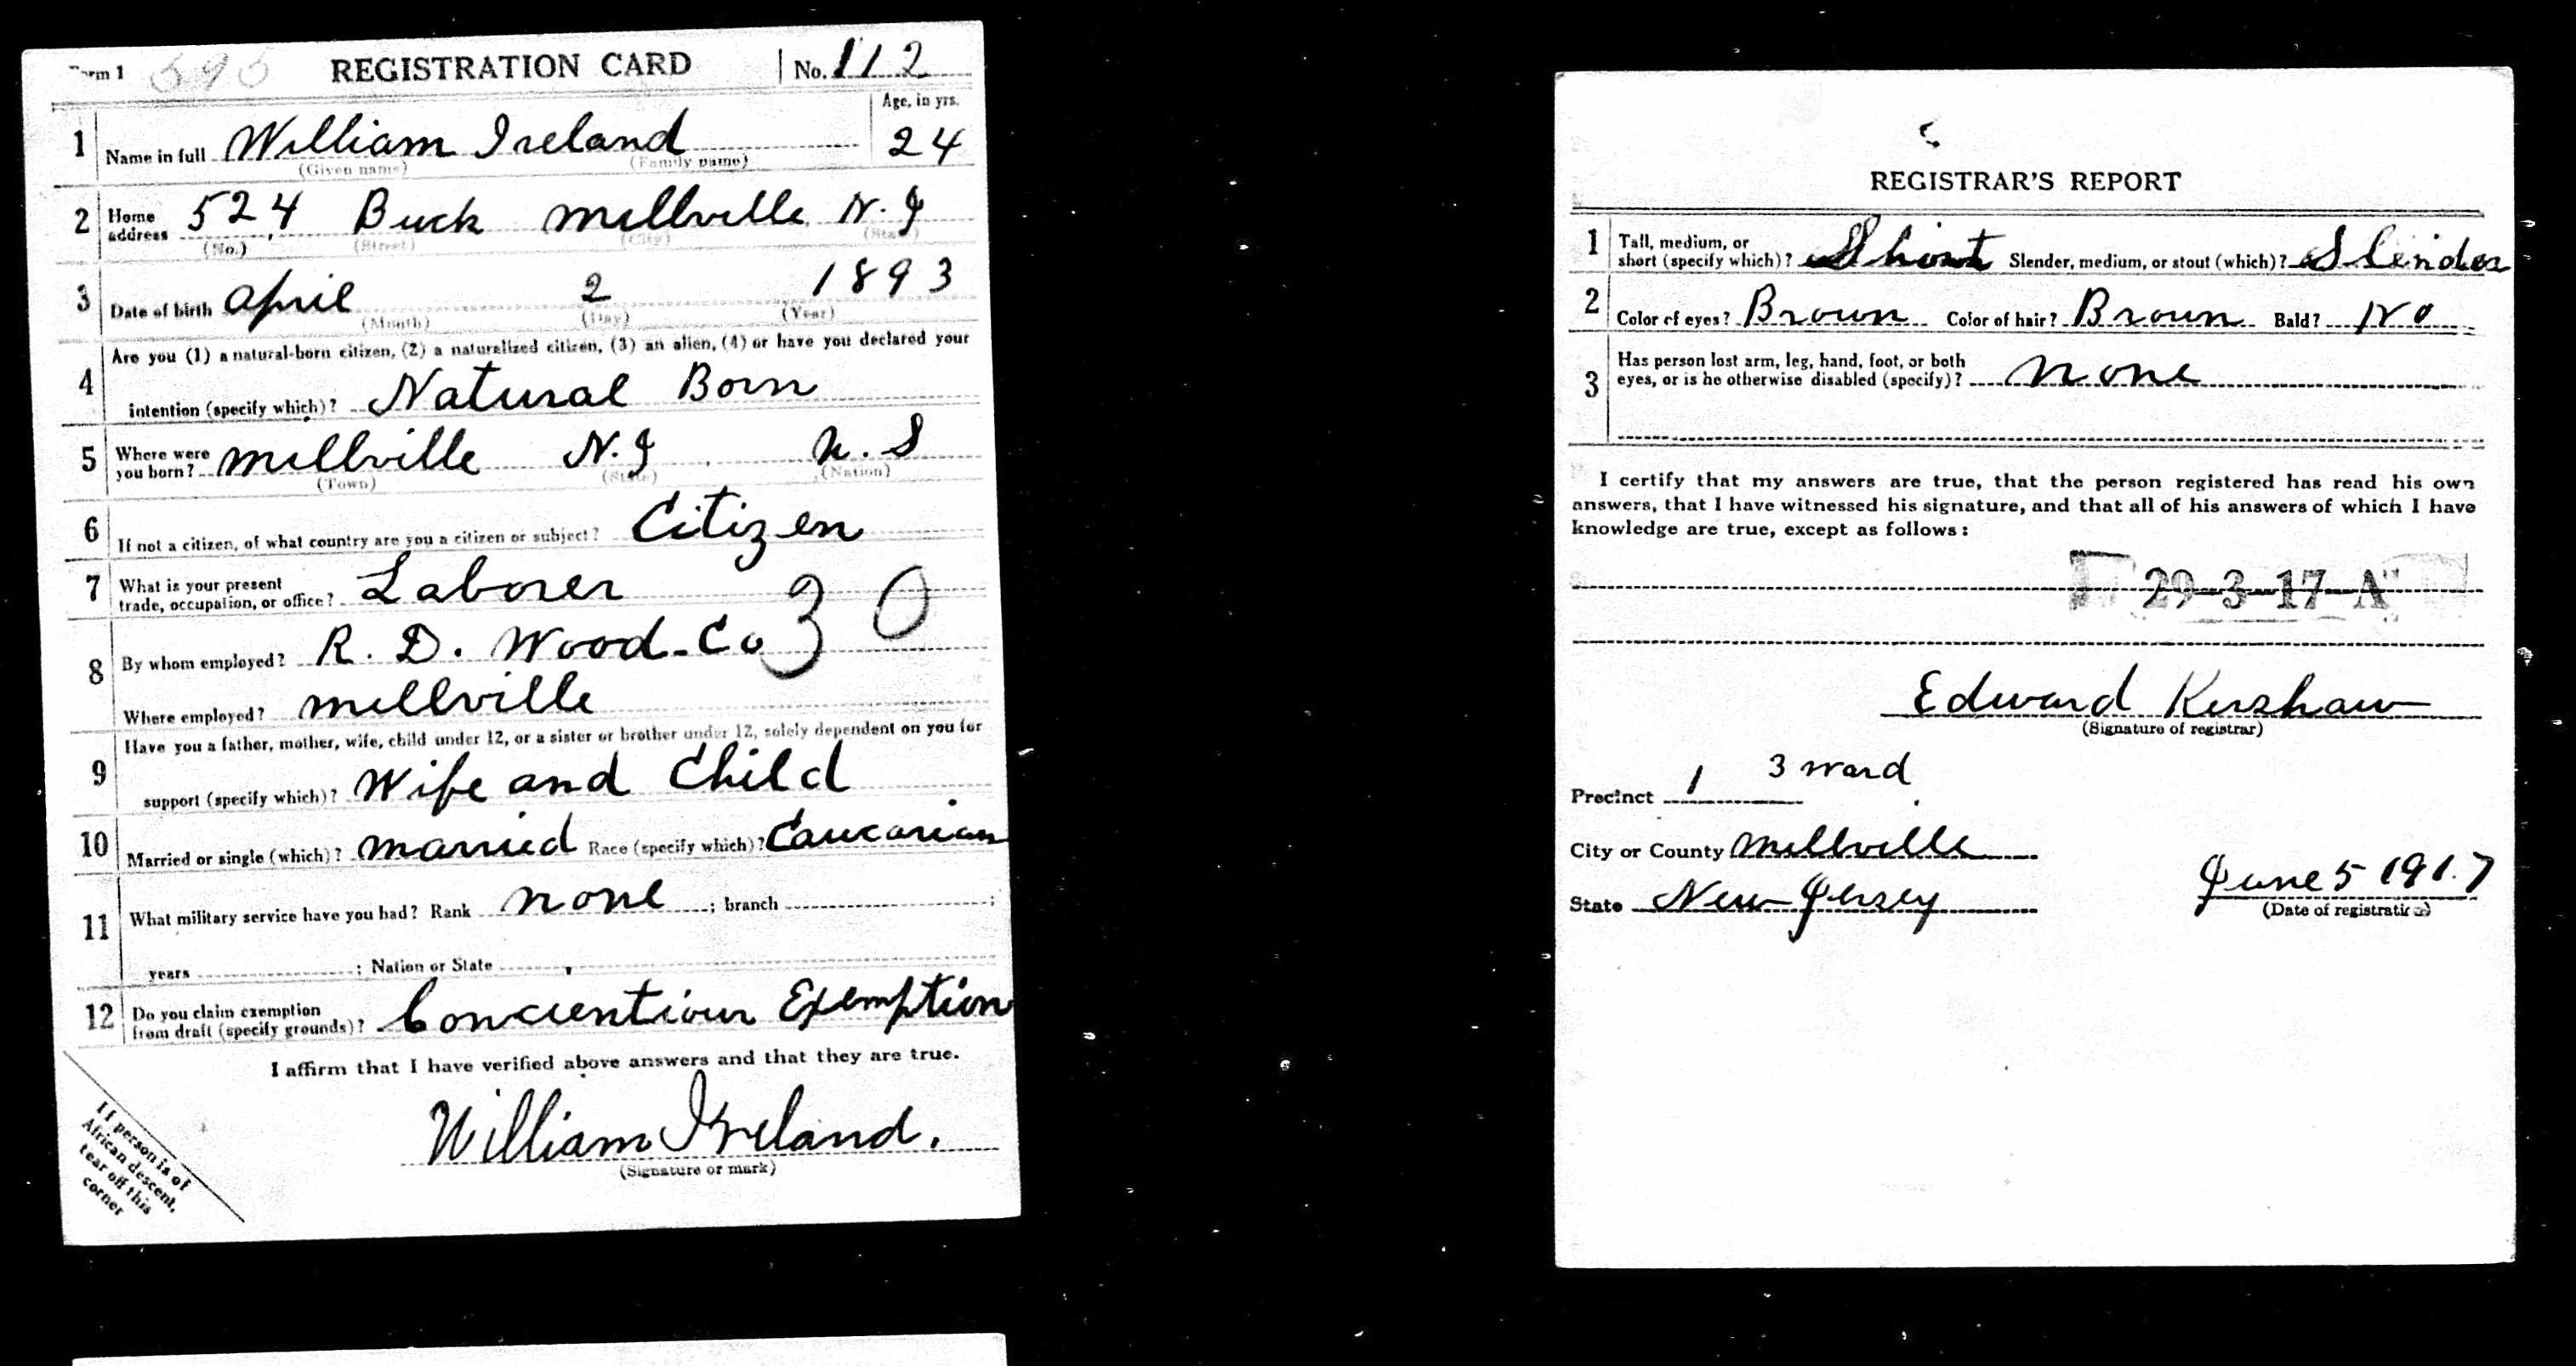 Form 1 595 REGISTRATION CARD No. 112
Age, in yrs.
1 Name in full William Ireland 24
(Given name) (Family name)
2 Home address 524 Buck Millville N. J
(No.) (Street) (City) (State)
3 Date of birth April 2 1893
(Month) (Day) (Year)
Are you (1) a natural-born citizen, (2) a naturalized citizen, (3) an alien, (4) or have you declared your
4 intention (specify which)? Natural Born
5 Where were you born? Millville N. J U. S
(Town) (State) (Nation)
6 If not a citizen, of what country are you a citizen or subject? Citizen
7 What is your present trade, occupation, or office? Laborer 30
8 By whom employed? R. D. Wood Co
Where employed? Millville
Have you a father, mother, wife, child under 12, or a sister or brother under 12, solely dependent on you for
9 support (specify which)? Wife and Child
10 Married or single (which)? Married Race (specify which)? Caucasian
11 What military service have you had? Rank none ; branch ;
years ; Nation or State
12 Do you claim exemption from draft (specify grounds)? Concientious Exemption
I affirm that I have verified above answers and that they are true.
William Ireland.
(Signature or mark)
If person is of
African descent,
tear off this
corner
REGISTRAR'S REPORT
1 Tall, medium, or short (specify which)? Short Slender, medium, or stout (which)? Slender
2 Color of eyes? Brown Color of hair? Brown Bald? No
3 Has person lost arm, leg, hand, foot, or both eyes, or is he otherwise disabled (specify)? None
I certify that my answers are true, that the person registered has read his own
answers, that I have witnessed his signature, and that all of his answers of which I have
knowledge are true, except as follows:
29-3-17-A
Edward Kershaw
(Signature of registrar)
Precinct 1 3 Ward
City or County Millville
State New Jersey
June 5 1917
(Date of registration)